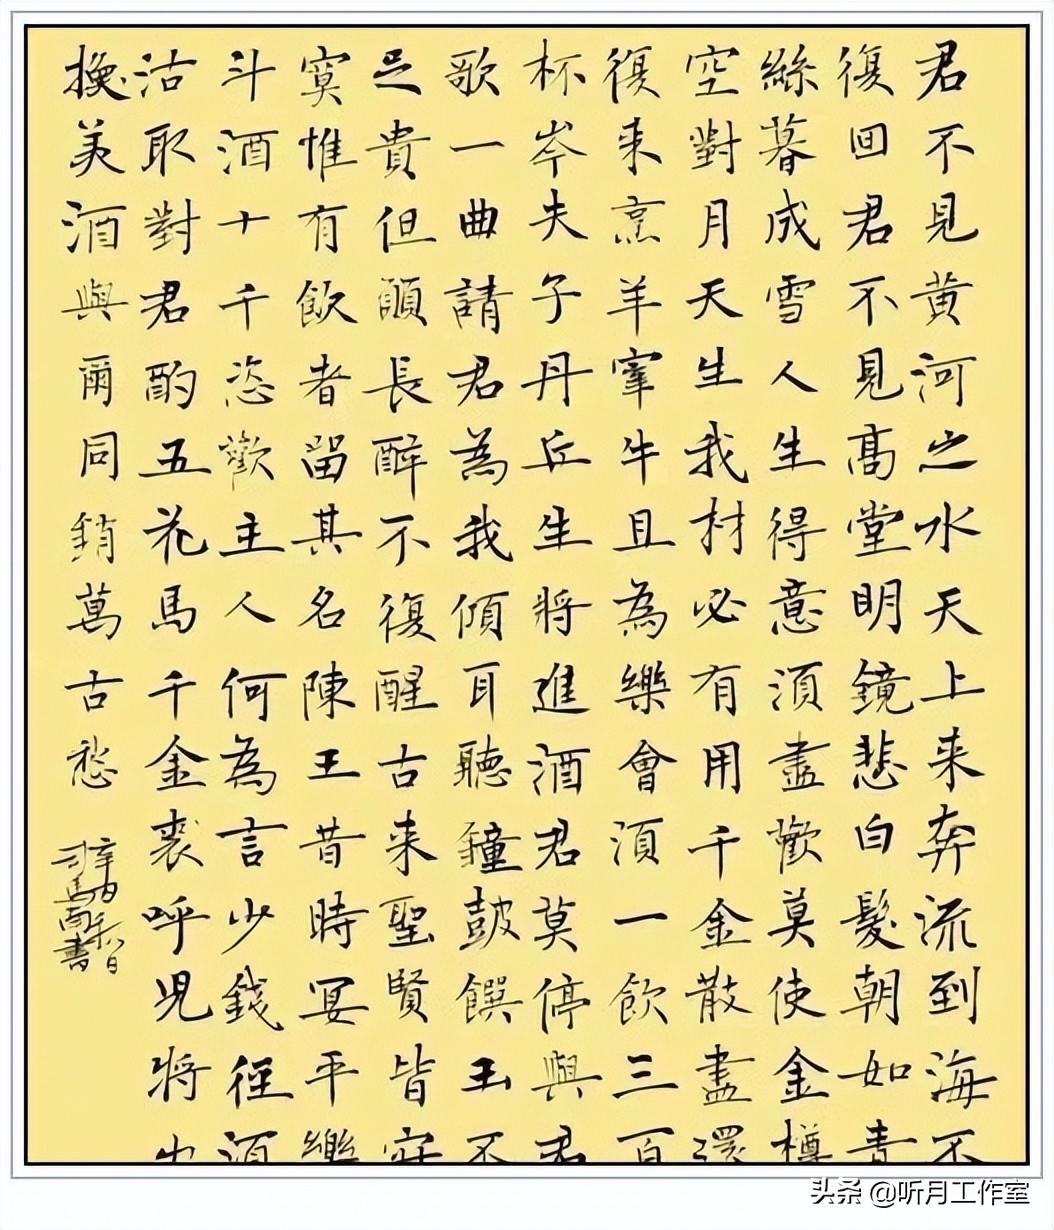 君不見黄河之水天上来奔流到海不
復回君不見高堂明鏡悲白髮朝如青
絲暮成雪人生得意須盡歡莫使金樽
空對月天生我材必有用千金散盡還
復来烹羊宰牛且為樂會須一飲三百
杯岑夫子丹丘生將進酒君莫停與君
歌一曲請君為我傾耳聽鐘鼓饌玉不
足貴但願長醉不復醒古来聖賢皆寂
寞惟有飲者留其名陳王昔時宴平樂
斗酒十千恣歡主人何為言少錢徑須
沽取對君酌五花馬千金裘呼児將出
換美酒與爾同銷萬古愁
頭条 @听月工作室